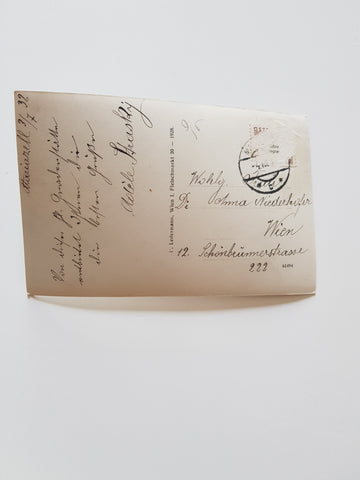 Mariazell 2/7 32
Von dieser h. Gnadenstätte
entbietet Ihnen die
die besten Grüßen
Adele
P. Ledermann, Wien I. Fleischmarkt 20 — 1928.
Wohlg.
Anna Niederhofer
Wien
12. Schönbrunnerstrasse
222